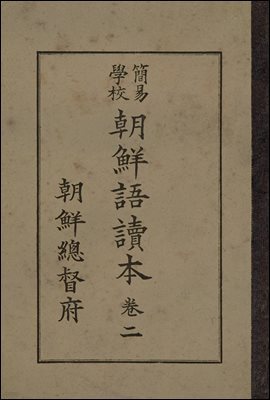 簡易學校
朝鮮語讀本 卷二
朝鮮總督府